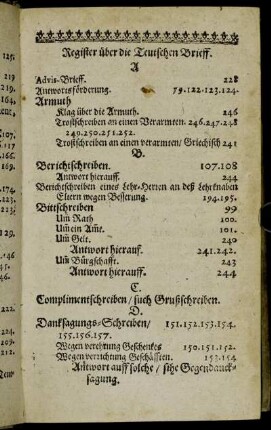 Register über die Teutschen Brieff.
A
Advis-Brieff. 228
Antwortsförderung. 79.122.123.124.
Armuth
Klag über die Armuth. 246
Trostschreiben an einen Verarmten. 246.247.248
249.250.251.252.
Trostschreiben an einen verarmten/ Griechisch 241
B.
Berichtschreiben. 107.108
Antwort hierauff. 244
Berichtschreiben eines Lehr-Herren an deß Lehrknaben
Eltern wegen Besserung. 194.195.
Bittschreiben 99
Um̃ Rath 100.
Um̃ ein Amt. 101.
Um̃ Gelt. 240
Antwort hierauf. 241.242.
Um̃ Bürgschafft. 243
Antwort hierauff. 244
C.
Complimentschreiben/ such Grußschreiben.
D.
Dancksagungs-Schreiben/ 151.152.153.154.
155.156.157.
Wegen verehrung Geschenkes 150.151.152.
Wegen verrichtung Geschäfften. 153.154
Antwort auff solche/ sihe Gegendanck-
sagung.